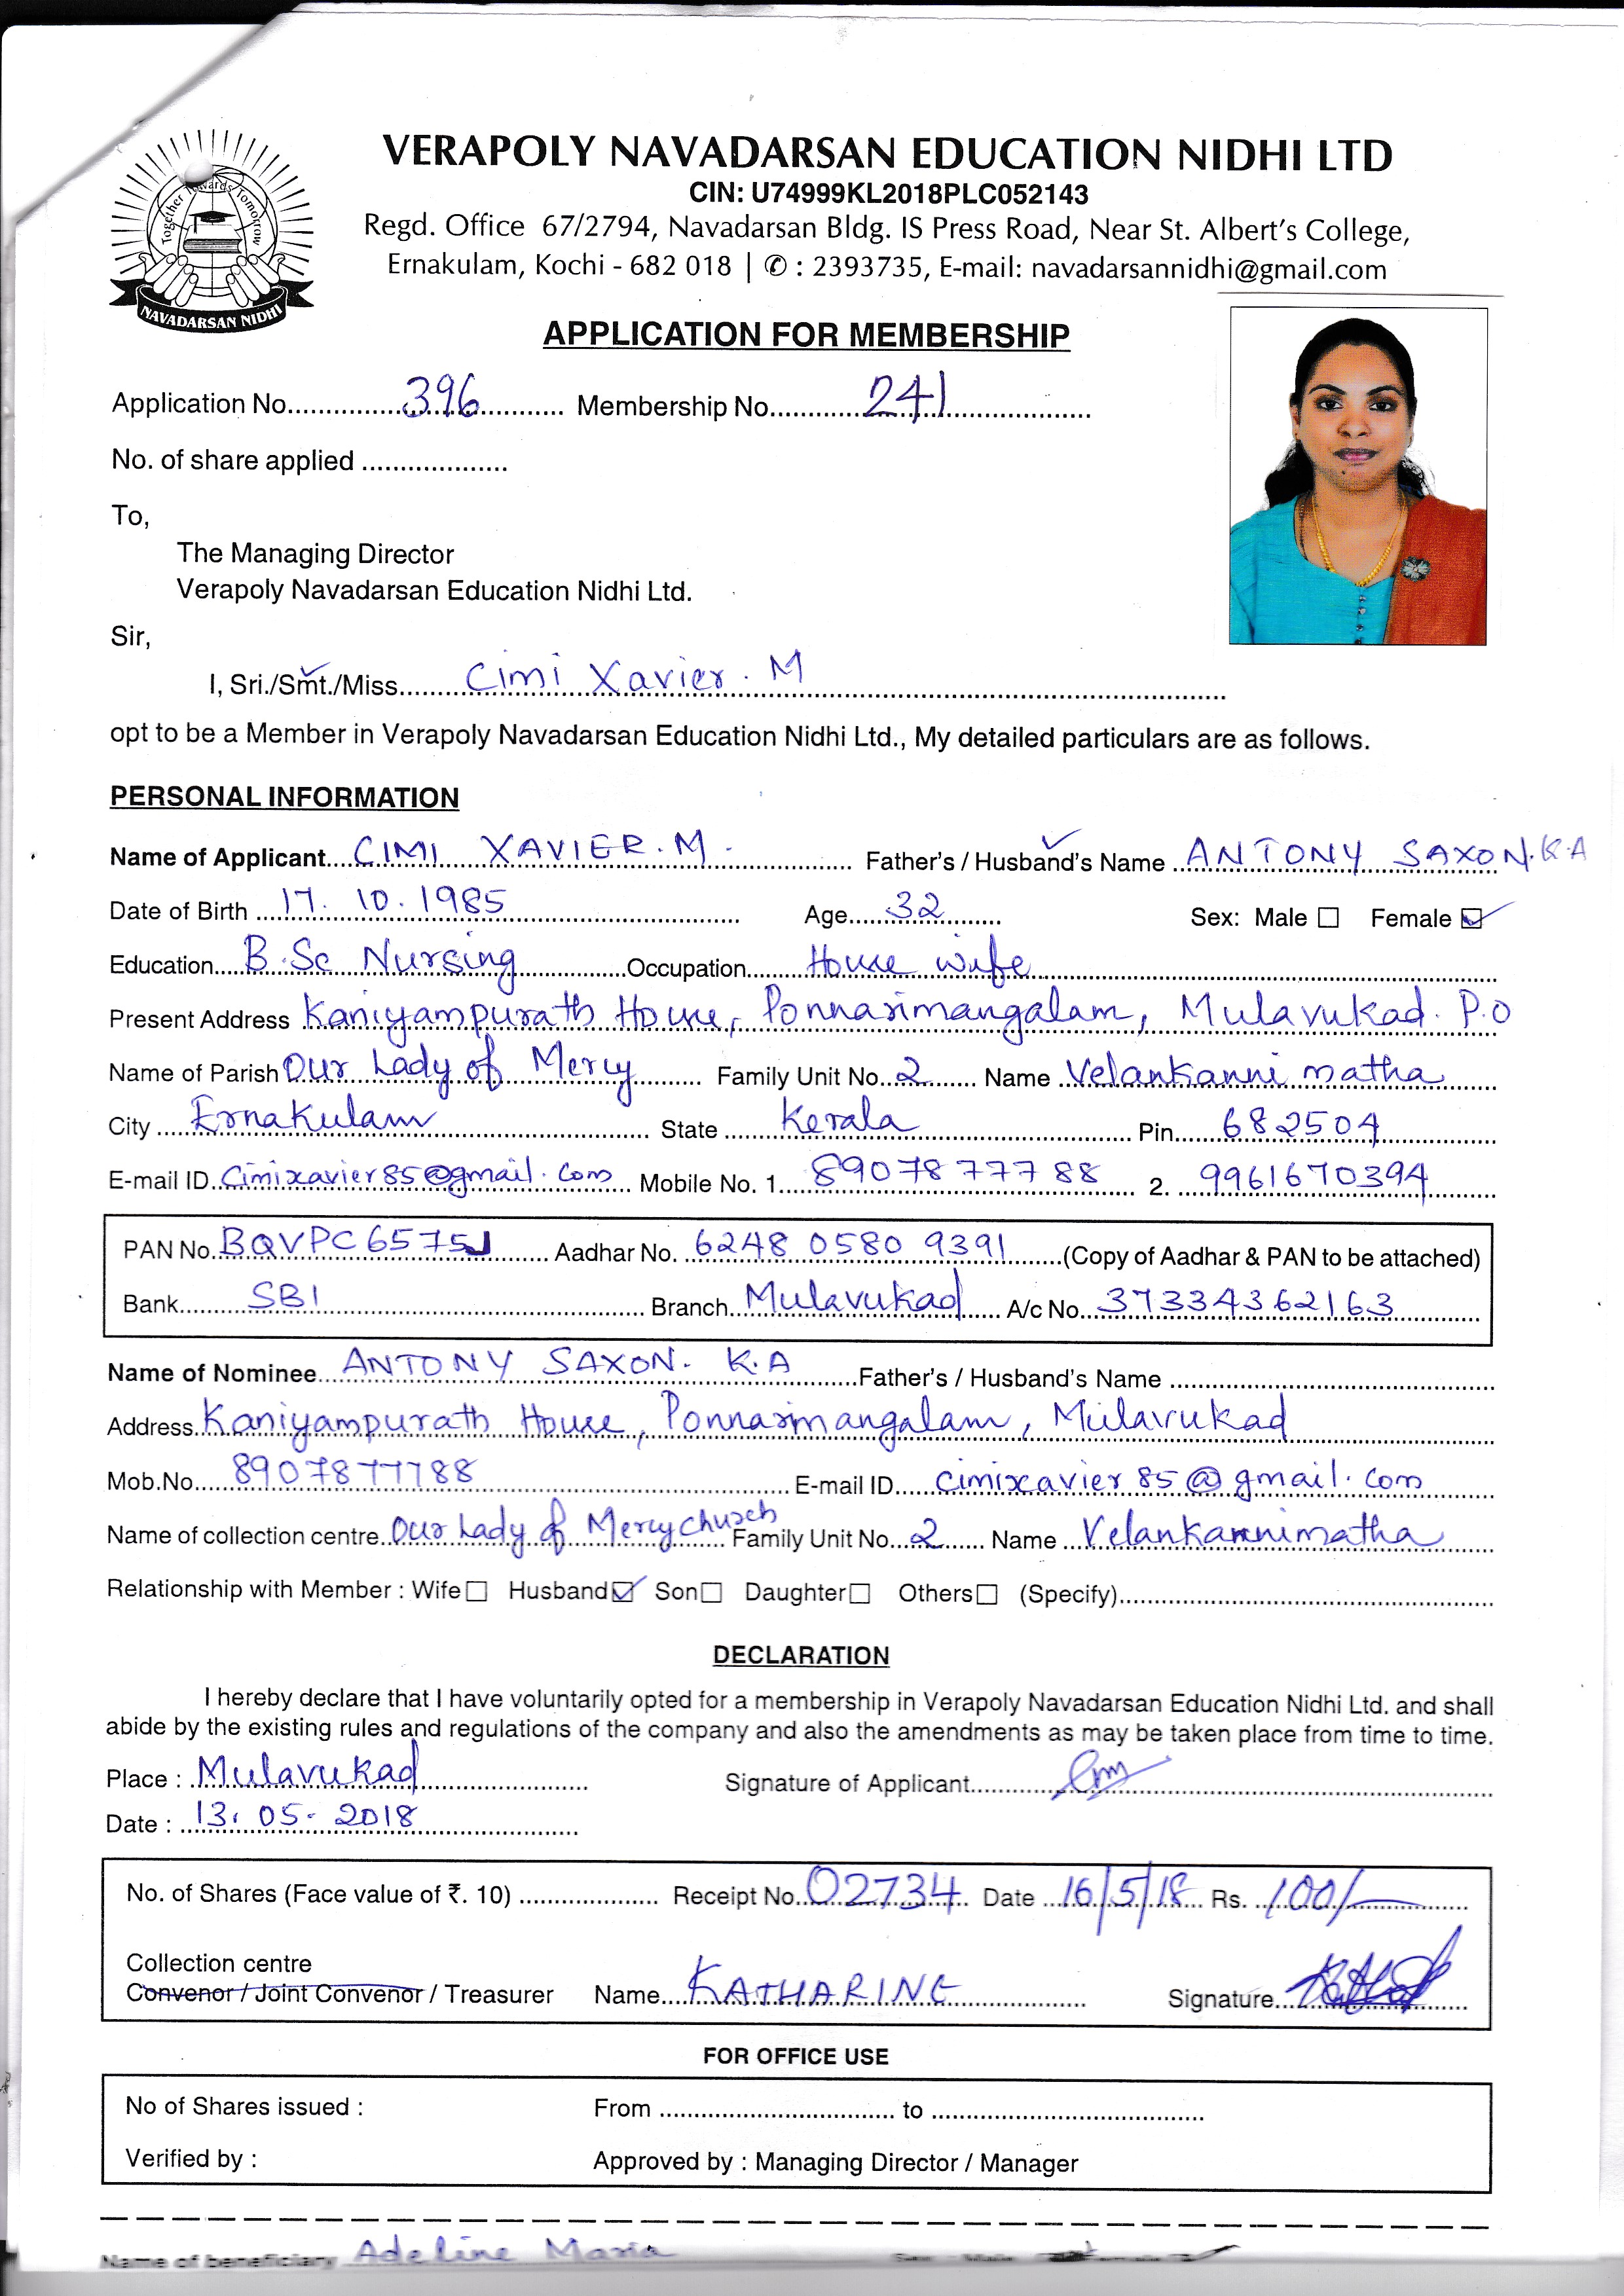 Together Towards Tomorrow
NAVADARSAN NIDHI
VERAPOLY NAVADARSAN EDUCATION NIDHI LTD
CIN: U74999KL2018PLC052143
Regd. Office 67/2794, Navadarsan Bldg. IS Press Road, Near St. Albert's College,
Ernakulam, Kochi - 682 018 | ✆ : 2393735, E-mail: navadarsannidhi@gmail.com
APPLICATION FOR MEMBERSHIP
Application No. 396 Membership No. 241
No. of share applied
To,
The Managing Director
Verapoly Navadarsan Education Nidhi Ltd.
Sir,
I, Sri./Smt./Miss. Cimi Xavier. M
opt to be a Member in Verapoly Navadarsan Education Nidhi Ltd., My detailed particulars are as follows.
PERSONAL INFORMATION
Name of Applicant CIMI XAVIER. M. Father's / Husband's Name ANTONY SAXON. K.A
Date of Birth 17. 10. 1985 Age 32 Sex: Male ☐ Female ☑
Education B.Sc Nursing Occupation House wife
Present Address Kaniyampurath House, Ponnarimangalam, Mulavukad. P.O
Name of Parish Our Lady of Mercy Family Unit No. 2 Name Velankanni matha
City Ernakulam State Kerala Pin 682504
E-mail ID Cimixavier85@gmail.com Mobile No. 1. 8907877788 2. 9961670394
PAN No. BQVPC6575J Aadhar No. 6248 0580 9391 (Copy of Aadhar & PAN to be attached)
Bank SBI Branch Mulavukad A/c No. 37334362163
Name of Nominee ANTONY SAXON. K.A Father's / Husband's Name
Address Kaniyampurath House, Ponnarimangalam, Mulavukad
Mob.No. 8907877788 E-mail ID cimixavier85@gmail.com
Name of collection centre Our Lady of Mercy church Family Unit No. 2 Name Velankannimatha
Relationship with Member : Wife ☐ Husband ☑ Son ☐ Daughter ☐ Others ☐ (Specify)
DECLARATION
I hereby declare that I have voluntarily opted for a membership in Verapoly Navadarsan Education Nidhi Ltd. and shall
abide by the existing rules and regulations of the company and also the amendments as may be taken place from time to time.
Place : Mulavukad Signature of Applicant
Date : 13. 05. 2018
No. of Shares (Face value of ₹. 10) Receipt No. 02734 Date 16/5/18 Rs. 100/-
Collection centre
Convenor / Joint Convenor / Treasurer Name KATHARINE Signature
FOR OFFICE USE
No of Shares issued : From to
Verified by : Approved by : Managing Director / Manager
Name of beneficiary Adeline Maria